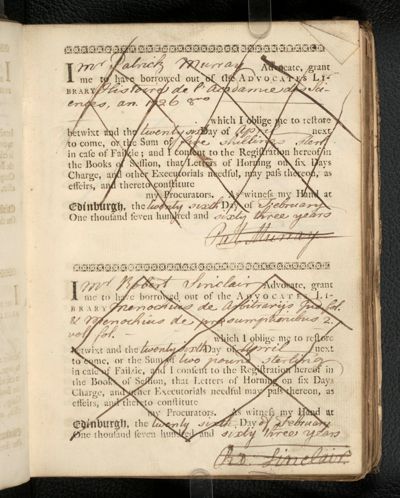 I Mr Patrick Murray Advocate, grant
me to have borrowed out of the ADVOCATES LI-
BRARY Histoire de l'Academie des Sci-
ences, an. 1726 8vo
which I oblige me to restore
betwixt and the twenty sixth Day of April next
to come, or the Sum of five shillings sterl.
in case of Failzie; and I consent to the Registration hereof in
the Books of Session, that Letters of Horning on six Days
Charge, and other Executorials needful, may pass thereon, as
effeirs, and thereto constitute
my Procurators. As witness my Hand at
Edinburgh, the twenty sixth Day of February
One thousand seven hundred and sixty three years
Pat Murray
I Mr Robert Sinclair Advocate, grant
me to have borrowed out of the ADVOCATES LI-
BRARY Menochius de Arbitrariis fol.
& Menochius de presumptionibus 2
vol fol.
which I oblige me to restore
betwixt and the twenty sixth Day of April next
to come, or the Sum of two pound sterling
in case of Failzie, and I consent to the Registration hereof in
the Books of Session, that Letters of Horning on six Days
Charge, and other Executorials needful may pass thereon, as
effeirs, and thereto constitute
my Procurators. As witness my Hand at
Edinburgh, the twenty sixth Day of February
One thousand seven hundred and sixty three years
Ro. Sinclair.